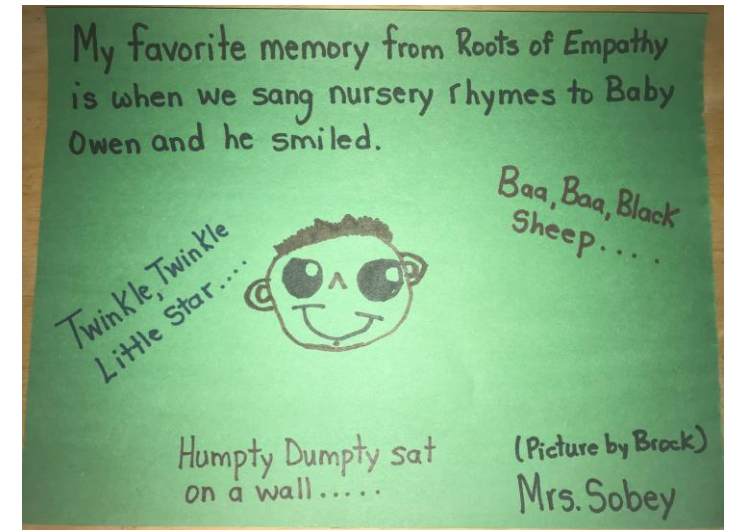 My favorite memory from Roots of Empathy
is when we sang nursery rhymes to Baby
Owen and he smiled.
Baa, Baa, Black
Sheep....
Twinkle, Twinkle
Little Star....
Humpty Dumpty sat
on a wall.....
(Picture by Brock)
Mrs. Sobey